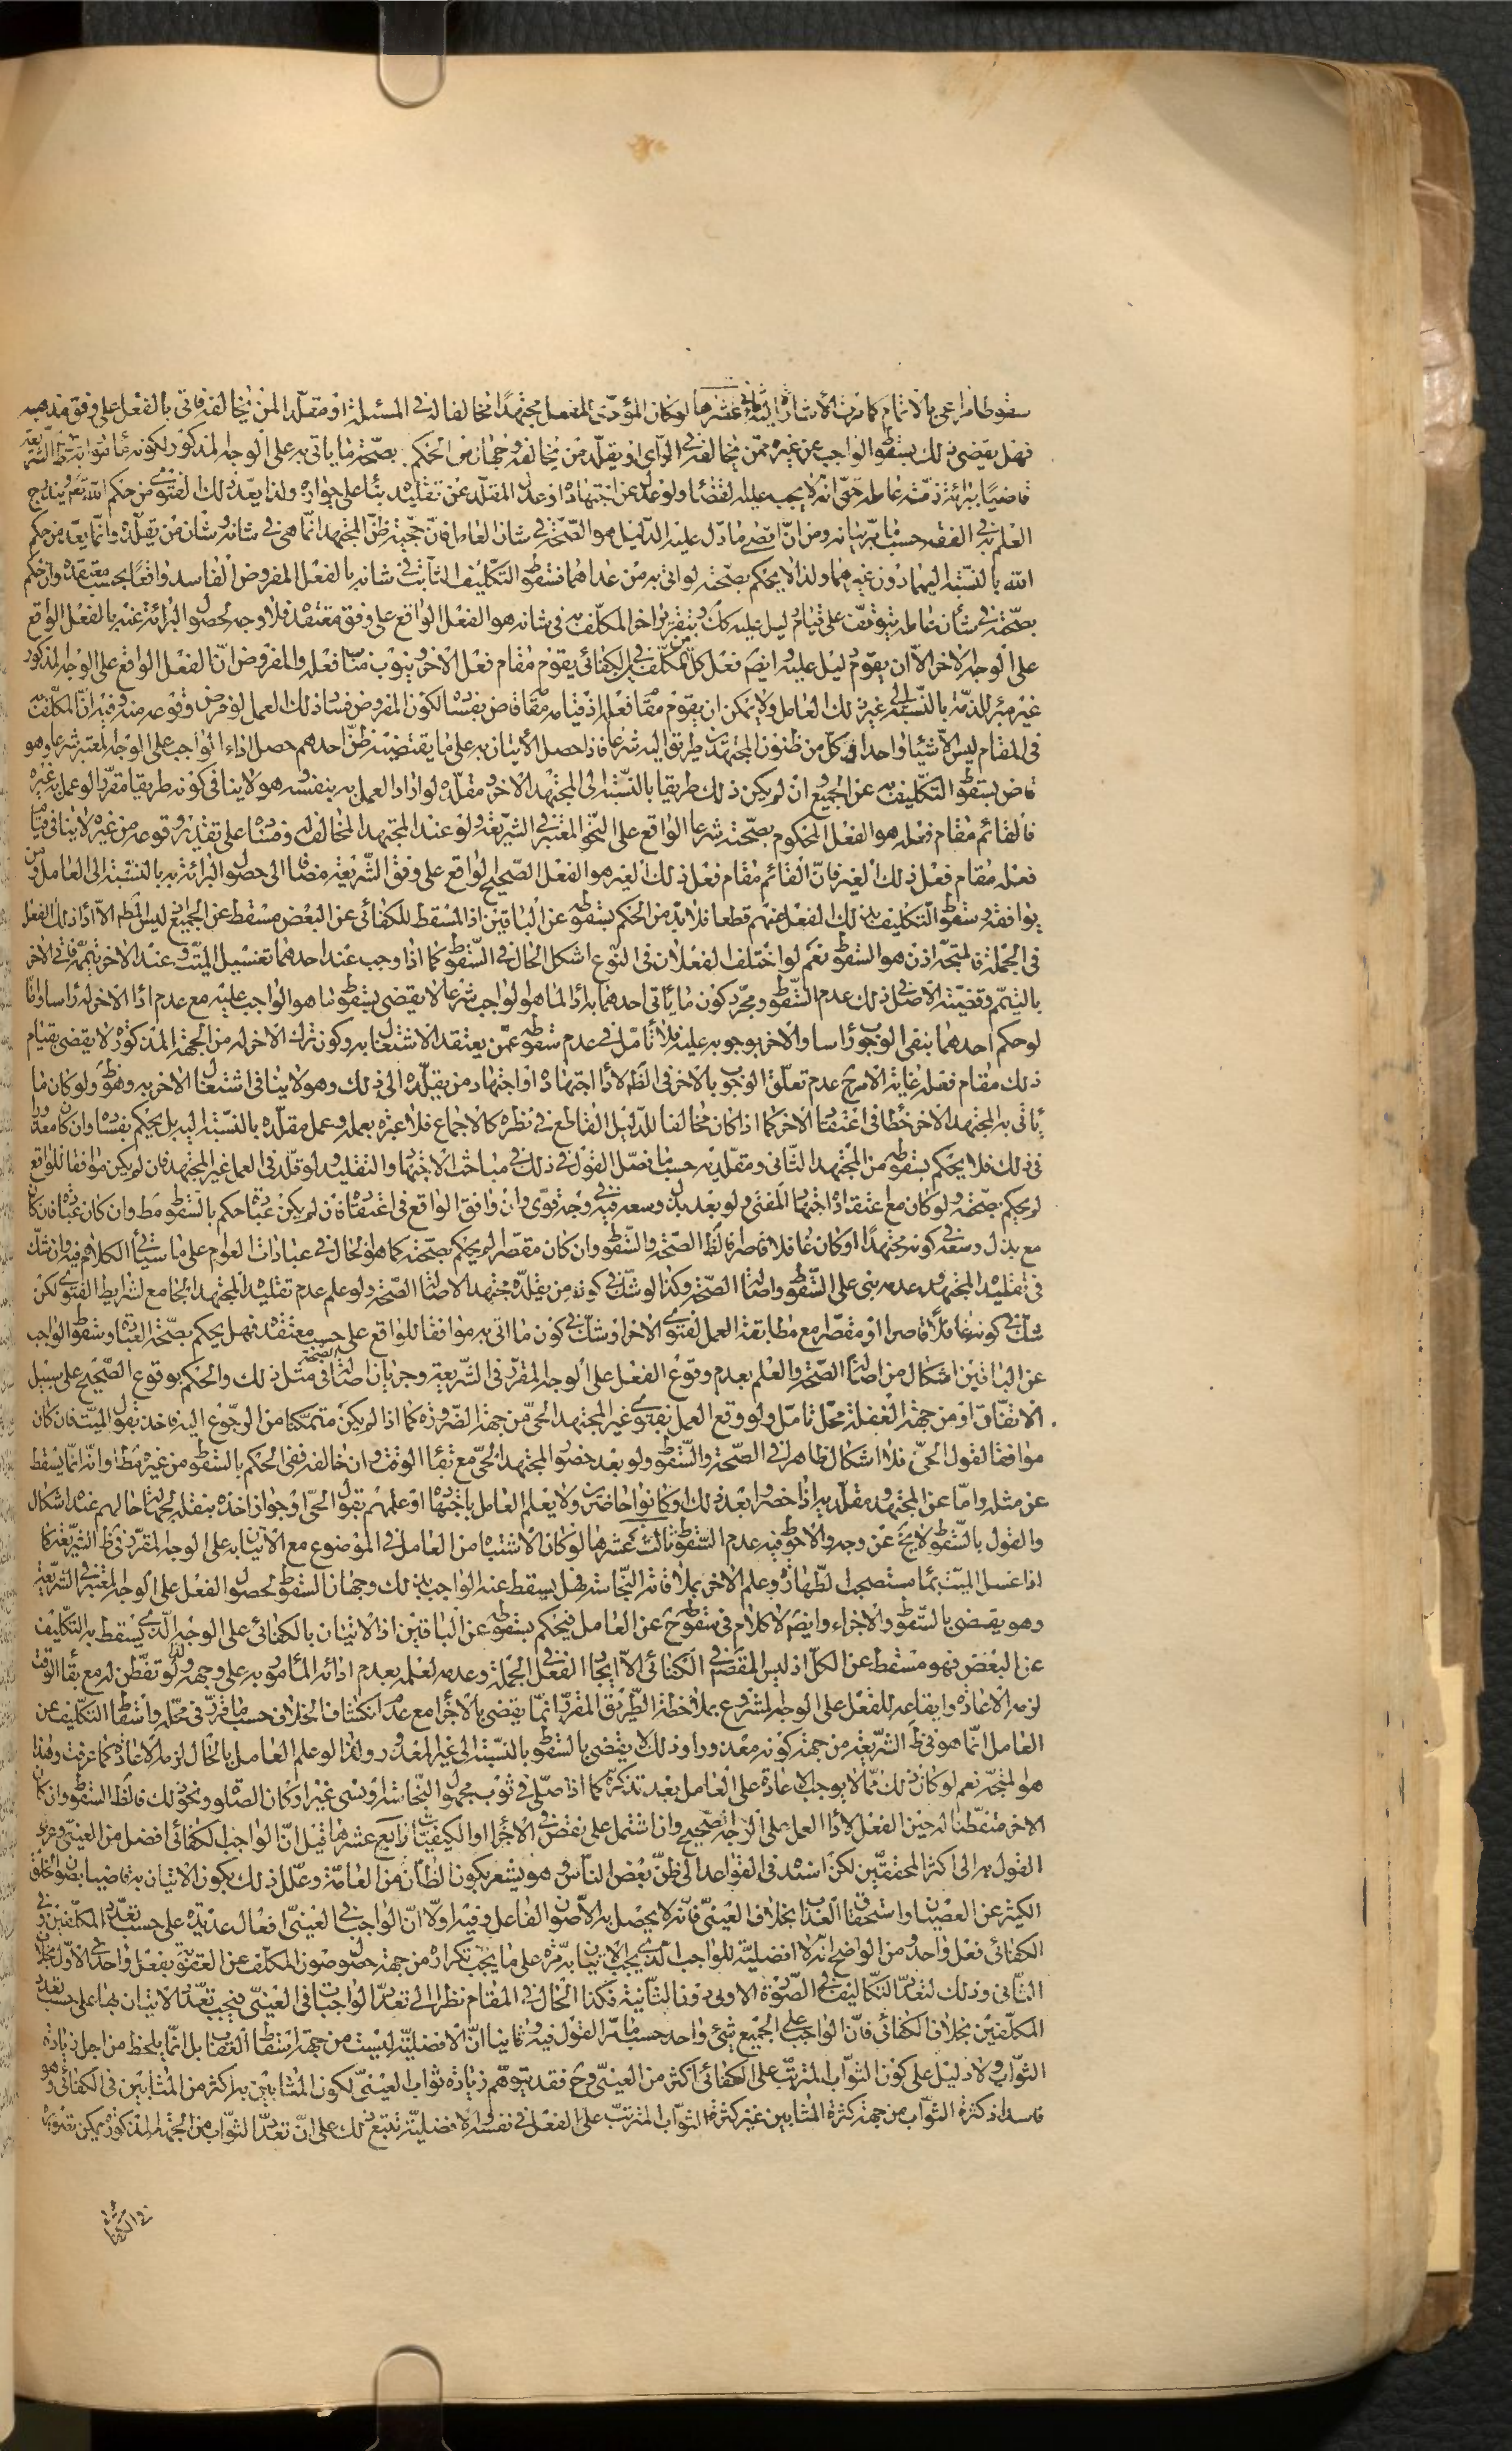 سقوطا مراعى بالاتمام كما مرت الاشارة اليه ثانى عشرها لو كان المؤدى للفعل مجتهدا مخالفا له فى المسئلة او مقلدا لمن يخالفه فاتى بالفعل على وفق مذهبه
فهل يقضى ذلك بسقوط الواجب عن غيره ممن يخالفه فى الراى او يقلد من يخالفه وجهان من الحكم بصحة ما ياتى به على الوجه المذكور لكونه مامورا به فى ظ الشريعة
قاضيا ببرائة ذمة عامله حتى انه لا يجب عليه القضاء ولو عدل عن اجتهاده او عدل المقلد عن تقليده بناء على جوازه ولذا يعد ذلك الفتوى من حكم الله تعم ويندرج
العلم به فى الفقه حسبما مر بيانه ومن ان اقصى ما دل عليه الدليل هو الصحة فى شان العامل فان حجية ظن المجتهد انما هى فى شانه وشان من يقلده وانما يعد من حكم
الله بالنسبة اليهما دون غيرهما ولذا لا يحكم بصحته لو اتى به من عداهما فسقوط التكليف الثابت فى شانه بالفعل المفروض الفاسد واقعا بحسب معتقده وان حكم
بصحته فى شأن عامله يتوقف على قيام دليل عليه كك وبتقرير اخر المكلف به فى شانه هو الفعل الواقع على وفق معتقده فلا وجه لحصول البرائة عنه بالفعل الواقع
على الوجه الاخر الا ان يقوم دليل عليه وايضا فعل كل من المكلفين فى الكفائى يقوم مقام فعل الاخر وينوب مناب فعله والمفروض ان الفعل الواقع على الوجه المذكور
غير مبرء للذمة بالنسبة الى غير ذلك العامل ولا يمكن ان يقوم مقام فعله اذ قيامه مقامه قاض بفساده لكون المفروض فساد ذلك العمل لو فرض وقوعه منه وفيه ان المكلف به
فى المقام ليس الا شيئا واحدا وكل من ظنون المجتهدين طريق اليه شرعا فاذا حصل الاتيان به على ما يقتضيه ظن احدهم حصل اداء الواجب على الوجه المعتبر شرعا وهو
قاض بسقوط التكليف به عن الجميع وان لم يكن ذلك طريقا بالنسبة الى المجتهد الاخر ومقلده لو اراد العمل به بنفسه وهو لا ينافى كونه طريقا مقررا لو عمل به غيره
فالقائم مقام فعله هو الفعل المحكوم بصحته شرعا الواقع على النحو المعتبر فى الشريعة ولو عند المجتهد المخالف له وفساده على تقدير وقوعه من غيره لا ينافى قيام
فعله مقام فعل ذلك الغير فان القائم مقام فعل ذلك الغير هو الفعل الصحيح الواقع على وفق الشريعة مضافا الى حصول البرائة به بالنسبة الى العامل ومن
يوافقه وسقوط التكليف بذلك الفعل عنهم قطعا فلا بد من الحكم بسقوطه عن الباقين اذ المسقط للكفائى عن البعض مسقط عن الجميع اذ ليس المط الا اداء ذلك الفعل
فى الجملة فالمتجه اذن هو السقوط نعم لو اختلف الفعلان فى النوع اشكل الحال فى السقوط كما اذا وجب عند احدهما تغسيل الميت وعند الاخر تيممه فاتى الاخر
بالتيمم وقضية الاصل فى ذلك عدم السقوط ومجرد كون ما ياتى احدهما به اداء لما هو الواجب شرعا لا يقضى بسقوط ما هو الواجب عليه مع عدم اداء الاخر له راسا واما
لو حكم احدهما بنفى الوجوب رأسا والاخر بوجوبه عليه فلا تأمل فى عدم سقوطه عمن يعتقد الاشتغال به وكون ترك الاخر له من الجهة المذكورة لا يقضى بقيام
ذلك مقام فعله غاية الامر ح عدم تعلق الوجوب بالاخر فى الظ لاداء اجتهاده او اجتهاد من يقلده الى ذلك وهو لا ينافى اشتغال الاخر به وهو ظ ولو كان ما
ياتى به المجتهد الاخر خطأ فى اعتقاد الاخر كما اذا كان مخالفا للدليل القاطع فى نظره كالاجماع فلا عبرة بعمله وعمل مقلده بالنسبة اليه بل يحكم بفساده وان كان معذورا
فى ذلك فلا يحكم بسقوطه من المجتهد الثانى ومقلديه حسبما فصل القول فى ذلك فى مباحث الاجتهاد والتقليد ولو قلد فى العمل غير المجتهد فان لم يكن موافقا للواقع
لم يحكم بصحته ولو كان مع اعتقاد اجتهاد المفتى ولو بعد بذل وسعه فيه فى وجه قوى وان وافق الواقع فى اعتقاده فان لم يكن عبادة حكم بالسقوط مط وان كان عبادة فان كان
مع بذل وسعه فى كونه مجتهدا او كان غافلا قاصرا فالظ الصحة والسقوط وان كان مقصرا لم يحكم بصحته كما هو الحال فى عبادات العوام على ما سياتى الكلام فيه وان شك
فى تقليده المجتهد وعدمه بنى على السقوط واصالة الصحة وكذا لو شك فى كونه من يقلده مجتهدا لاصالة الصحة ولو علم عدم تقليده المجتهد الجامع لشرايط الفتوى لكن
شك فى كونه غافلا قاصرا او مقصرا مع مطابقة العمل لفتوى الاخر او شك فى كون ما اتى به موافقا للواقع على حسب معتقده فهل يحكم بصحة العبادة وسقوط الواجب
عن الباقين اشكال من اصالة الصحة والعلم بعدم وقوع الفعل على الوجه المقرر فى الشريعة وجريان اصالة الصحة فى مثل ذلك والحكم بوقوع الصحيح على سبيل
الاتفاق او من جهة الغفلة محل تأمل ولو وقع العمل بفتوى غير المجتهد الحى من جهة الضرورة كما اذا لم يكن متمكنا من الرجوع اليه فاخذ بقول الميت فان كان
موافقا لقول الحى فلا اشكال ظاهرا فى الصحة والسقوط ولو بعد حضور المجتهد الحى مع بقاء الوقت وان خالفه ففى الحكم بالسقوط من غيره مط او انه انما يسقط
عن مثله واما عن المجتهد ومقلديه اذا حضروا بعد ذلك او كانوا حاضرين ولا يعلم العامل باجتهادهم او علمهم بقول الحى او جواز اخذه بنقله لجهالة حالهم عنده اشكال
والقول بالسقوط لا يخ عن وجه والاحوط فيه عدم السقوط ثالث عشرها لو كان الاشتباه من العامل فى الموضوع مع الاتيان به على الوجه المقرر فى ظ الشريعة كما
اذا غسل الميت بماء مستصحب الطهارة وعلم الاخر بملاقاته النجاسة فهل يسقط عنه الواجب بذلك وجهان السقوط لحصول الفعل على الوجه المعتبر فى الشريعة
وهو يقضى بالسقوط والاجزاء وايضا لا كلام فى سقوطه ح عن العامل فيحكم بسقوطه عن الباقين اذ الاتيان بالكفائى على الوجه الذى يسقط به التكليف
عن البعض فهو مسقط عن الكل اذ ليس المقصود فى الكفائى الا ايجاد الفعل فى الجملة وعدمه لعلمه بعدم اداء المأمور به على وجهه ولذا لو تفطن له مع بقاء الوقت
لزمه الاعادة وايقاعه للفعل على الوجه المشروع بملاحظة الطريق المقرر انما يقضى بالاجزاء مع عدم انكشاف الخلاف حسبما قرر فى محله واسقاط التكليف عن
العامل انما هو فى ظ الشريعة من جهة كونه معذورا وذلك لا يقضى بالسقوط بالنسبة الى غير المعذور ولذا لو علم العامل بالحال لزمه الاعادة كما عرفت وهذا
هو المتجه نعم لو كان ذلك مما لا يوجب الاعادة على العامل بعد تذكره كما اذا صلى فى ثوب مجهول النجاسة او نسى غير اركان الصلوة ونحو ذلك فالظ السقوط وان كان
الاخر متفطنا له حين الفعل لاداء العمل على الوجه الصحيح وان اشتمل على نقص فى الاجزاء او الكيفيات رابع عشرها قيل ان الواجب الكفائى افضل من العينى وعزى
القول به الى اكثر المحققين لكن اسنده فى القواعد الى ظن بعض الناس وهو يشعر بكون الظان من العامة وعلل ذلك بكون الاتيان به قاضيا بصون الخلق
الكثير عن العصيان واستحقاق العذاب بخلاف العينى فانه لا يحصل به الا صون الفاعل وفيه اولا ان الواجب فى العينى افعال عديدة على حسب تعدد المكلفين وفى
الكفائى فعل واحد ومن الواضح انه لا افضلية للواجب الذى يجب الاتيان به مرة على ما يجب تكراره من جهة حصول صون المكلف عن العقوبة بفعل واحد فى الاول بخلاف
الثانى وذلك لتعدد التكاليف فى الصورة الاولى دون الثانية فكذا الحال فى المقام نظرا الى تعدد الواجبات فى العينى فيجب تعدد الاتيان بها على حسب تعدد
المكلفين بخلاف الكفائى فان الواجب على الجميع شىء واحد حسبما مر القول فيه وثانيا ان الافضلية ليست من جهة اسقاط العقاب بل انما يلحظ من اجل زيادة
الثواب ولا دليل على كون الثواب المترتب على الكفائى اكثر من العينى وح فقد يتوهم زيادة ثواب العينى لكون المثابين به اكثر من المثابين فى الكفائى وهو
فاسد اذ كثرة الثواب من جهة كثرة المثابين غير كثرة الثواب المترتب على الفعل فى نفسه والافضلية تتبع ذلك على ان تعدد الثواب من الجهة المذكورة يمكن تصويره